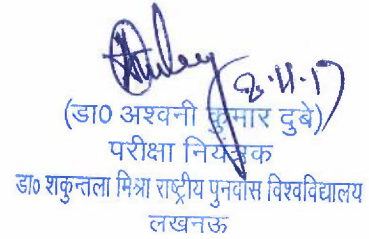 2.11.17
(डा0 अश्वनी कुमार दुबे)
परीक्षा नियंत्रक
डा० शकुन्तला मिश्रा राष्ट्रीय पुनर्वास विश्वविद्यालय
लखनऊ